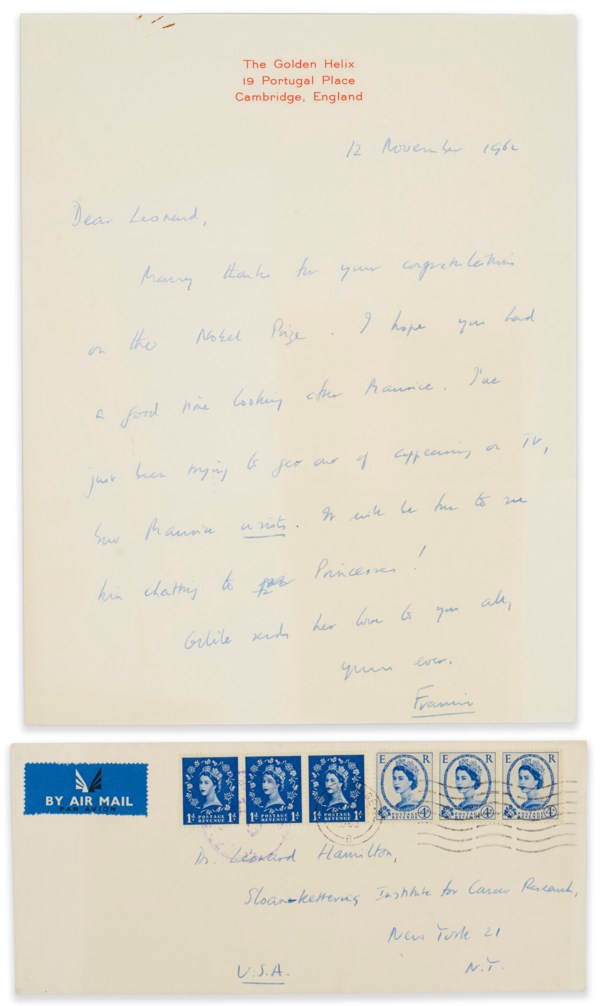 The Golden Helix
19 Portugal Place
Cambridge, England
12 November 1962
Dear Leonard,
Many thanks for your congratulations
on the Nobel Prize. I hope you had
a good time looking after Maurice. I've
just been trying to get out of appearing on TV,
but Maurice insists. It will be fun to see
him chatting to Princesses!
Odile sends her love to you all,
yours ever.
Francis
BY AIR MAIL
PAR AVION
1D POSTAGE REVENUE 1D
1D POSTAGE REVENUE 1D
1D POSTAGE REVENUE 1D
E R 4D POSTAGE REVENUE
E R 4D POSTAGE REVENUE
E R POSTAGE REVENUE
Dr. Leonard Hamilton,
Sloan-Kettering Institute for Cancer Research,
New York 21
N.Y.
U.S.A.